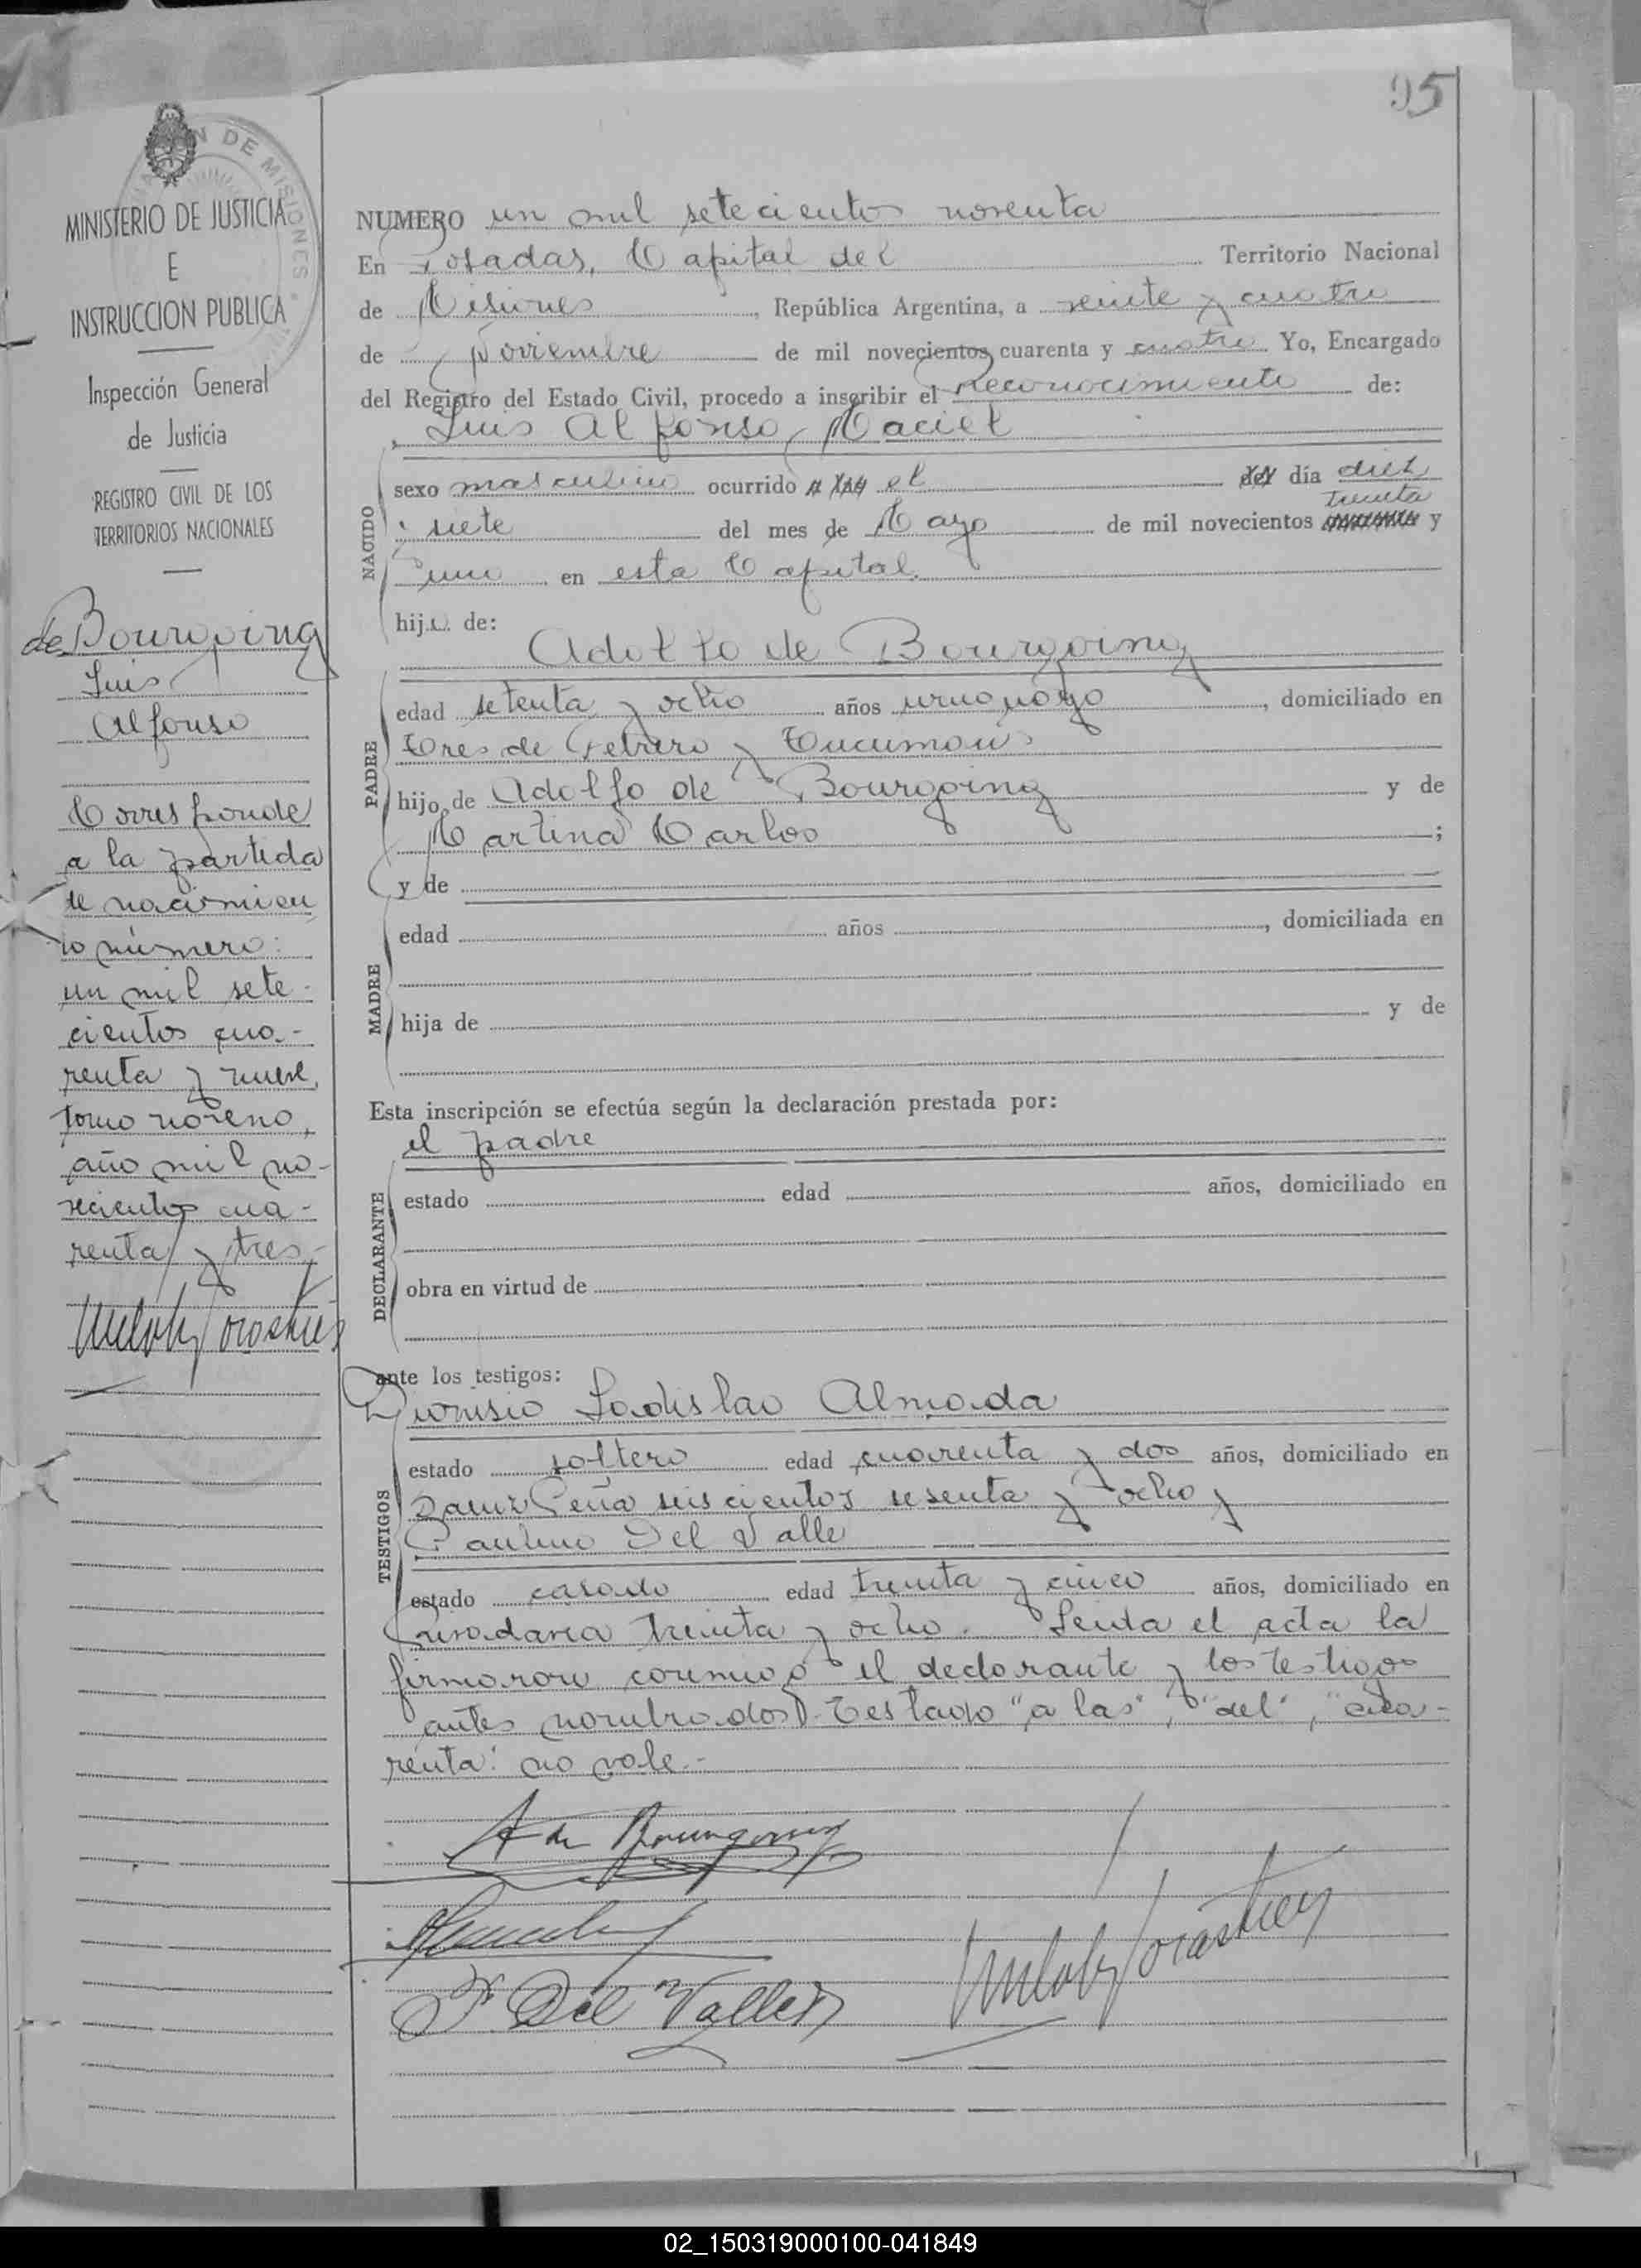 95
DE MISIONES
MINISTERIO DE JUSTICIA
E
INSTRUCCION PUBLICA
Inspección General
de Justicia
REGISTRO CIVIL DE LOS
TERRITORIOS NACIONALES
de Bourgoing
Luis
Alfonso
Corresponde
a la partida
de nacimien
to número:
un mil sete-
cientos cua-
renta y nueve,
tomo noveno,
año mil no-
vecientos cua-
renta y tres.-
NUMERO un mil setecientos noventa
En Posadas, Capital del Territorio Nacional
de Misiones, República Argentina, a veinte y cuatro
de Noviembre de mil novecientos cuarenta y cuatro Yo, Encargado
del Registro del Estado Civil, procedo a inscribir el reconocimiento de:
Luis Alfonso Maciel
NACIDO
sexo masculino ocurrido a las el del día diez
treinta
y siete del mes de Mayo de mil novecientos cuarenta y
uno en esta Capital.
hijo de:
Adolfo de Bourgoing
PADRE
edad setenta y ocho años uruguayo, domiciliado en
Tres de Febrero y Tucuman
hijo de Adolfo de Bourgoing y de
Martina Carlos;
y de
MADRE
edad años, domiciliada en
hija de y de
Esta inscripción se efectúa según la declaración prestada por:
el padre
DECLARANTE
estado edad años, domiciliado en
obra en virtud de
ante los testigos:
Dionisio Ladislao Almada
TESTIGOS
estado soltero edad cuarenta y dos años, domiciliado en
Peña seiscientos sesenta y ocho y
Paulino Del Valle
estado casado edad treinta y cinco años, domiciliado en
Rivadavia treinta y ocho. Leida el acta la
firmaron conmigo el declarante y los testigos
antes nombrados. Testado "a las", "del", "cua-
renta" no vale.-
A de Bourgoing
P Del Valle
02_150319000100-041849